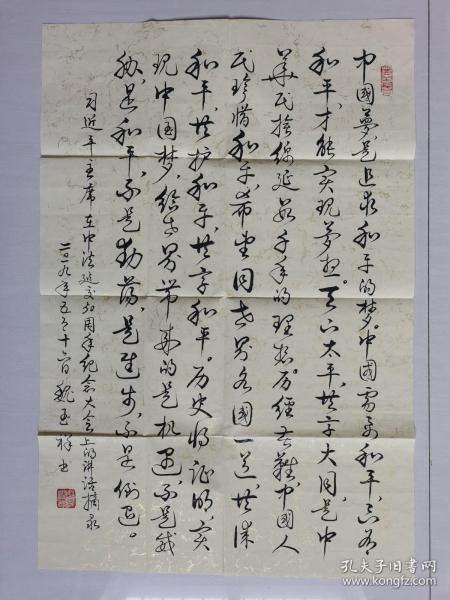 中國夢是追求和平的梦。中國需要和平,只有
和平,才能实现夢想。天下太平,共享大同,是中
華民族绵延数千年的理想。历經苦難,中國人
民珍惜和平,希望同世界各國一道,共谋
和平,共护和平,共享和平。历史将证明,实
现中国梦,给世界带来的是机遇,不是威
胁,是和平,不是動荡,是進步,不是倒退。
习近平主席在中法建交50周年纪念大会上的讲话摘录
年五月十六日 魏玉祥书
孔夫子旧书网
www.kongfz.com